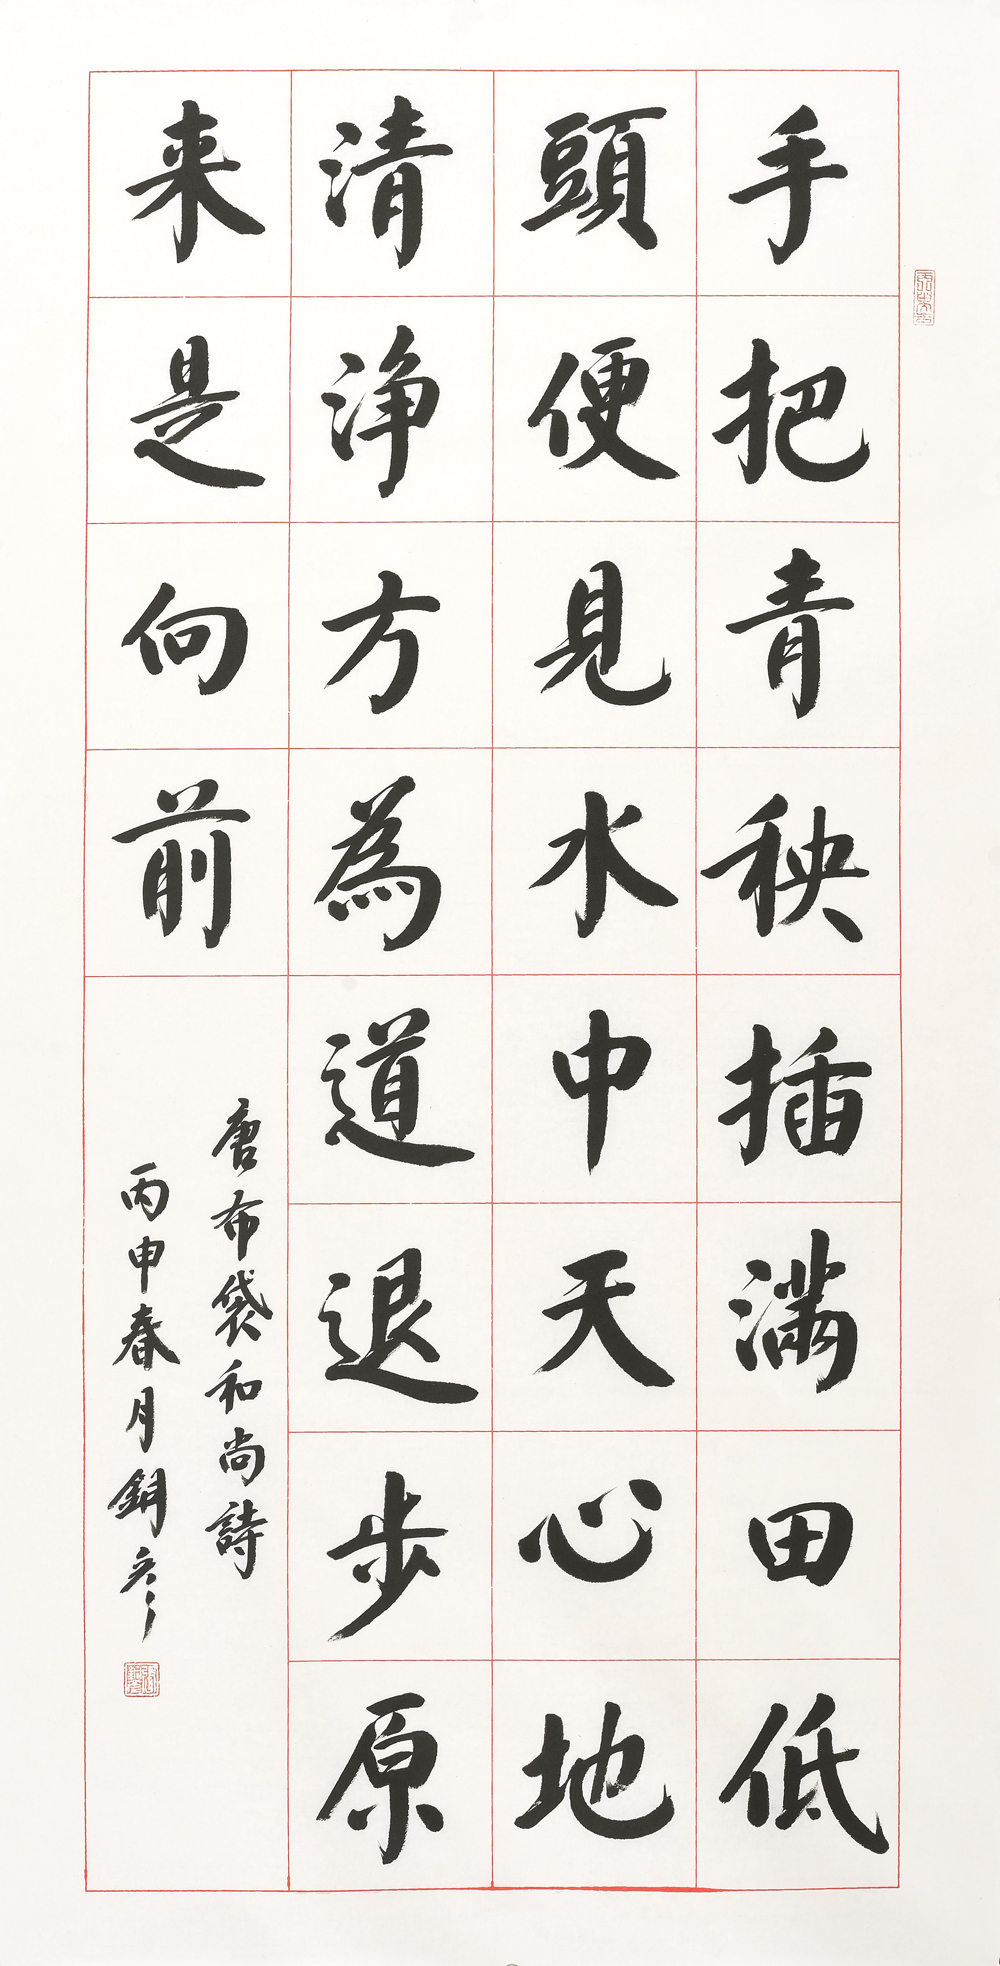 手把青秧插滿田低
頭便見水中天心地
清淨方為道退步原
来是向前
唐布袋和尚詩
丙申春月銅彥